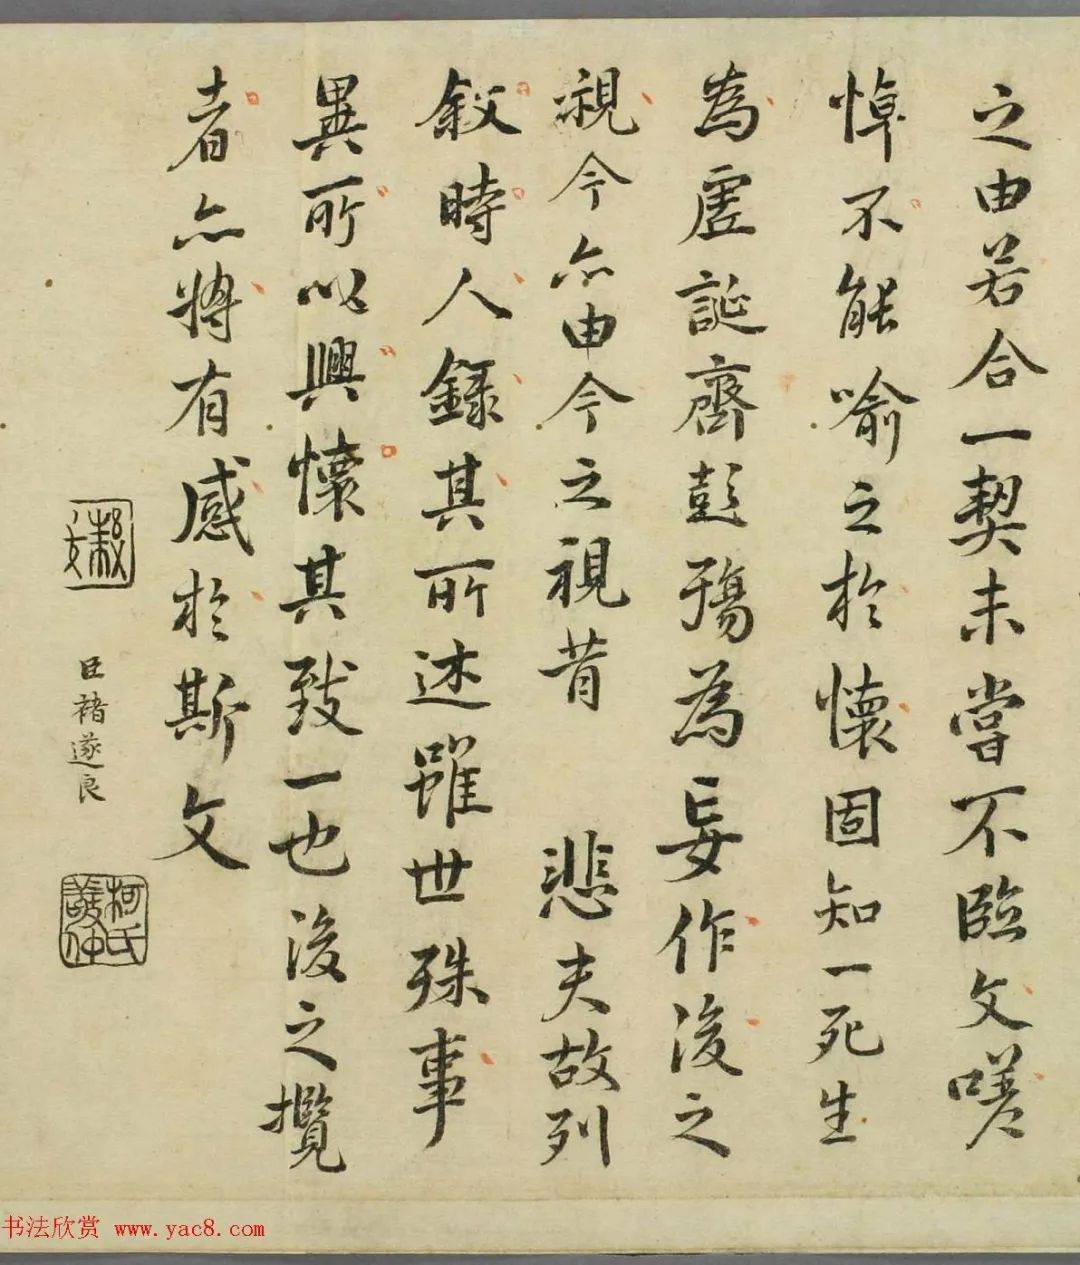 之由若合一契未嘗不臨文嗟
悼不能喻之於懷固知一死生
為虛誕齊彭殤為妄作後之
視今亦由今之視昔 悲夫故列
叙時人錄其所述雖世殊事
異所以興懷其致一也後之攬
者亦將有感於斯文
臣褚遂良
柯氏敬仲
书法欣赏 www.yac8.com